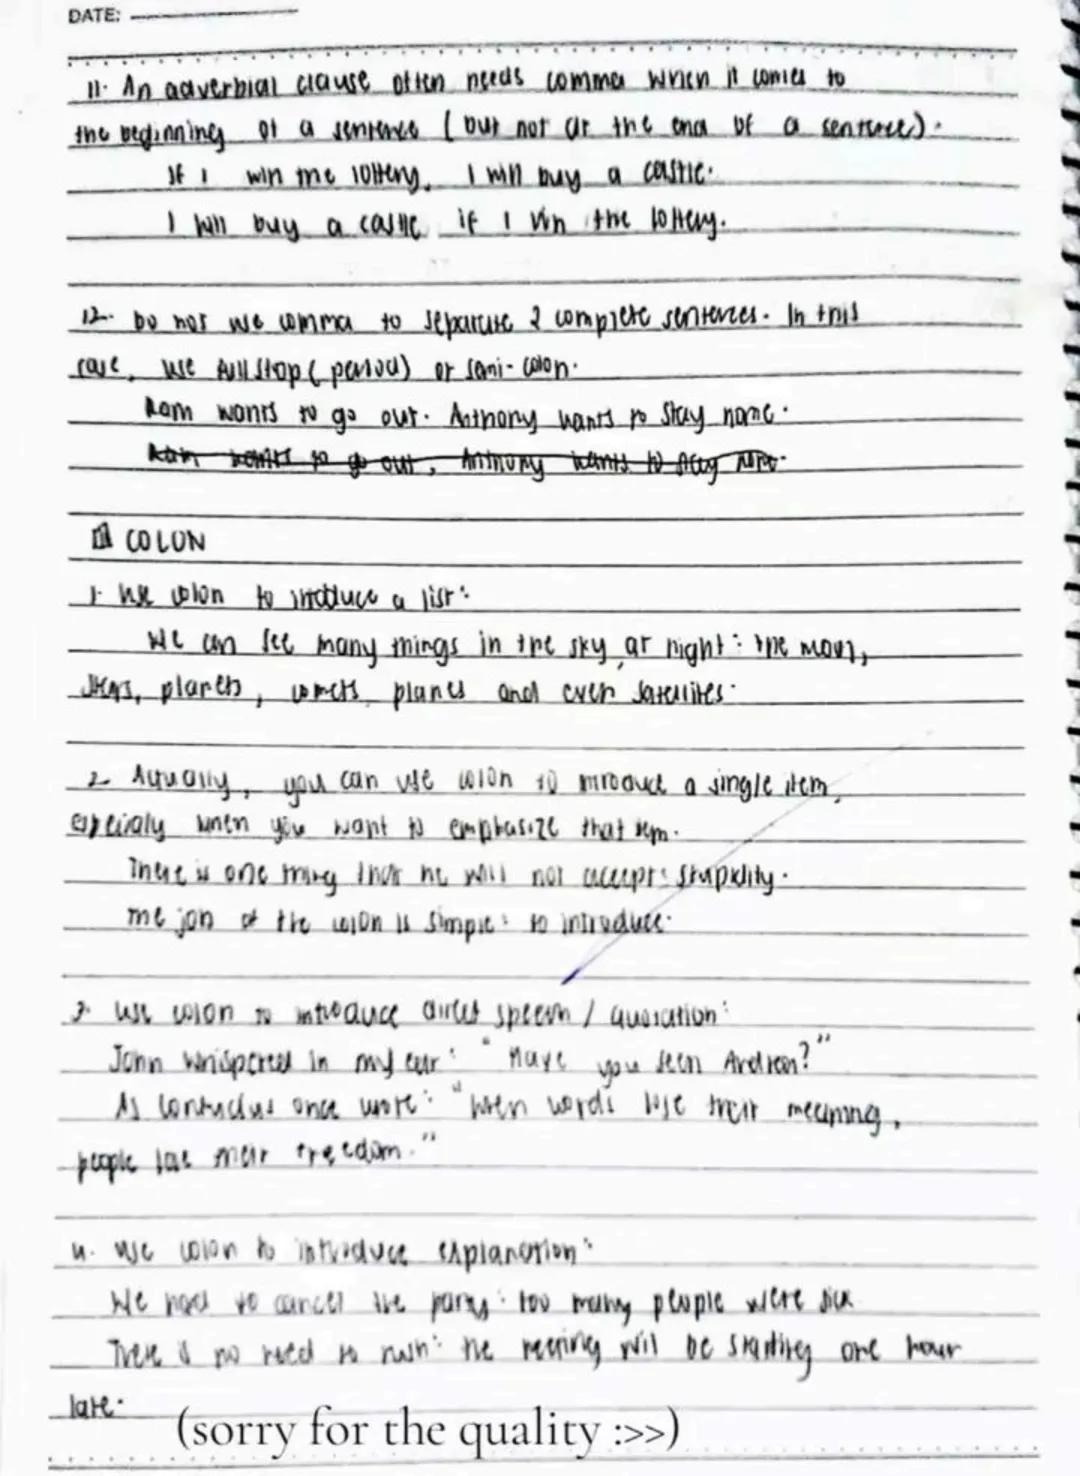 DATE:
11. An adverbial clause often needs comma when it comes to
the beginning of a sentence (but not at the end of a sentence).
If I win the lottery, I will buy a castle.
I will buy a castle if I win the lottery.
12. Do not use comma to separate 2 complete sentences. In this
case, use full stop (period) or semi-colon.
Ram wants to go out. Anthony wants to stay home.
Ram wants to go out, Anthony wants to stay home.
COLON
1. Use colon to introduce a list:
We can see many things in the sky at night: the moon,
stars, planets, comets, planes and even satellites.
2. Actually, you can use colon to introduce a single item,
especialy when you want to emphasize that item.
There is one thing that he will not accept: stupidity.
The job of the colon is simple: to introduce.
3. Use colon to introduce direct speech / quotation:
John whispered in my ear: "Have you seen Andrean?"
As Confucius once wrote: "When words lose their meaning,
people lose their freedom."
4. Use colon to introduce explanation:
We had to cancel the party: too many people were sick
There is no need to rush: the meeting will be starting one hour
late.
(sorry for the quality :>>)